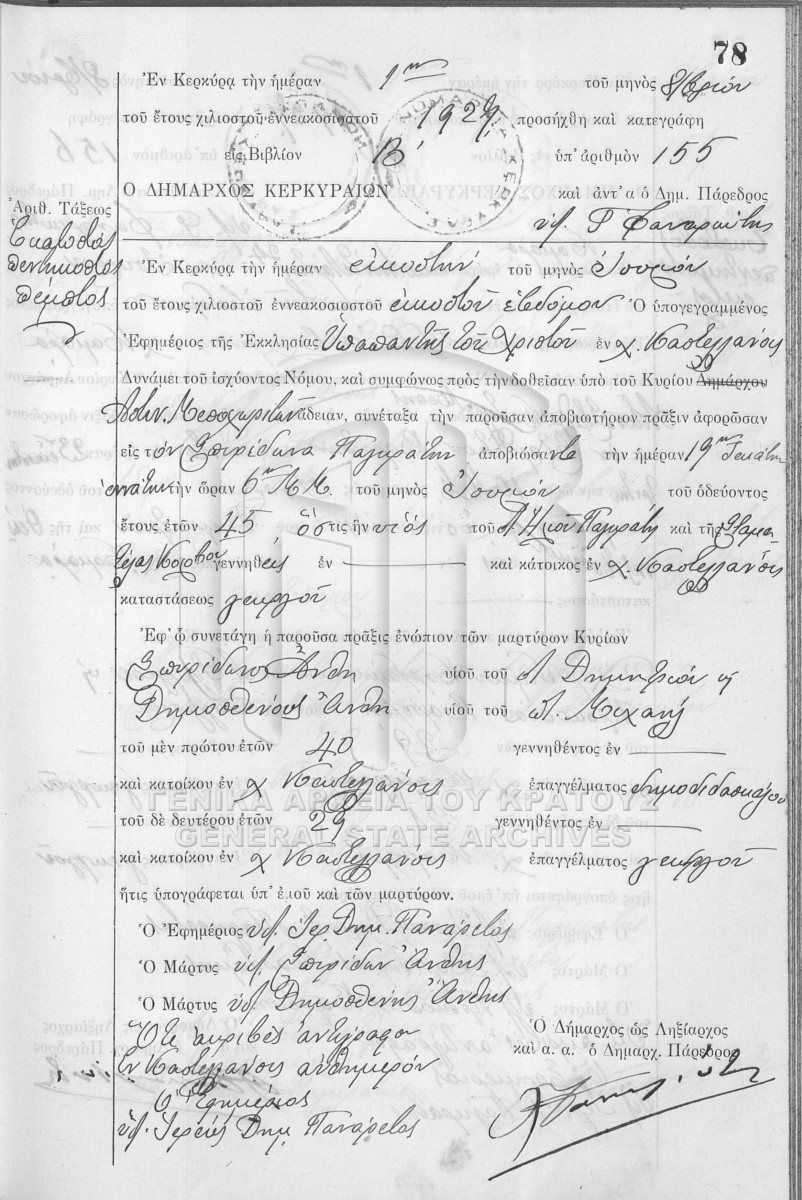 78
Ἐν Κερκύρᾳ τὴν ἡμέραν 1ην τοῦ μηνὸς 8/βρίου
τοῦ ἔτους χιλιοστοῦ ἐννεακοσιοστοῦ 1927 προσήχθη καὶ κατεγράφη
εἰς Βιβλίον Β' ὑπ' ἀριθμὸν 155
Ο ΔΗΜΑΡΧΟΣ ΚΕΡΚΥΡΑΙΩΝ καὶ ἀντ'α ὁ Δημ. Πάρεδρος
Ἀριθ. Τάξεως
Ἑκατοστὸς
πεντηκοστὸς
πέμπτος
Ἐν Κερκύρᾳ τὴν ἡμέραν εἰκοστὴν τοῦ μηνὸς Ἰουνίου
τοῦ ἔτους χιλιοστοῦ ἐννεακοσιοστοῦ εἰκοστοῦ ἑβδόμου Ὁ ὑπογεγραμμένος
Ἐφημέριος τῆς Ἐκκλησίας Ὑπαπαντῆς τοῦ Χριστοῦ ἐν χ. Καστελλάνοις
Δυνάμει τοῦ ἰσχύοντος Νόμου, καὶ συμφώνως πρὸς τὴν δοθεῖσαν ὑπὸ τοῦ Κυρίου Δημάρχου
ἄδειαν, συνέταξα τὴν παροῦσαν ἀποβιωτήριον πρᾶξιν ἀφορῶσαν
εἰς τὸν Σπυρίδωνα Παγκράτη ἀποβιώσαντα τὴν ἡμέραν 19ην δεκάτην
ἐννάτην τὴν ὥραν 6ην Μ.Μ. τοῦ μηνὸς Ἰουνίου τοῦ ὁδεύοντος
ἔτους ἐτῶν 45 ὅστις ἦν υἱὸς τοῦ Παγκράτη καὶ τῆς Σταμα-
τέλας γεννηθεὶς ἐν — καὶ κάτοικος ἐν χ. Καστελλάνοις
καταστάσεως γεωργοῦ
Ἐφ' ᾧ συνετάγη ἡ παροῦσα πρᾶξις ἐνώπιον τῶν μαρτύρων Κυρίων
Σπυρίδωνος Ἄνθη υἱοῦ τοῦ Δημητρίου ἢ
Δημοσθένους Ἄνθη υἱοῦ τοῦ Μιχαήλ
τοῦ μὲν πρώτου ἐτῶν 40 γεννηθέντος ἐν —
καὶ κατοίκου ἐν χ Καστελλάνοις ἐπαγγέλματος δημοδιδασκάλου
ΓΕΝΙΚΑ ΑΡΧΕΙΑ ΤΟΥ ΚΡΑΤΟΥΣ
τοῦ δὲ δευτέρου ἐτῶν 29 γεννηθέντος ἐν —
GENERAL STATE ARCHIVES
καὶ κατοίκου ἐν χ Καστελλάνοις ἐπαγγέλματος γεωργοῦ
ἥτις ὑπογράφεται ὑπ' ἐμοῦ καὶ τῶν μαρτύρων.
Ὁ Ἐφημέριος ὑπ. Ἱερ. Δημ. Πανάρετος
Ὁ Μάρτυς ὑπ. Σπυρίδων Ἄνθης
Ὁ Μάρτυς ὑπ. Δημοσθένης Ἄνθης
Ὅτι ἀκριβὲς ἀντίγραφον
Ἐν Καστελλάνοις αὐθημερόν
Ὁ Ἐφημέριος
ὑπ. Ἱερεὺς Δημ. Πανάρετος
Ὁ Δήμαρχος ὡς Ληξίαρχος
καὶ α. α. ὁ Δημαρχ. Πάρεδρος